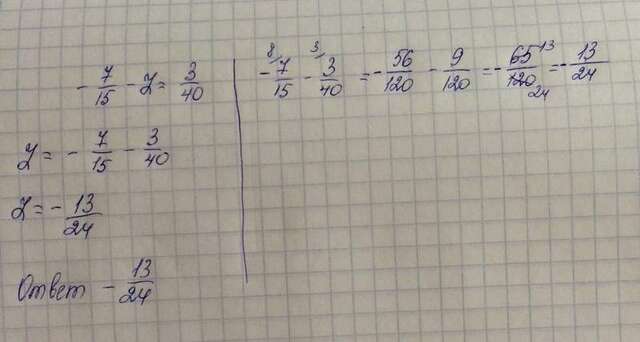 - 7/15 - z = 3/40
z = - 7/15 - 3/40
z = - 13/24
Ответ - 13/24
8 3
- 7/15 - 3/40 = - 56/120 - 9/120 = - 65/120 = - 13/24
13
24